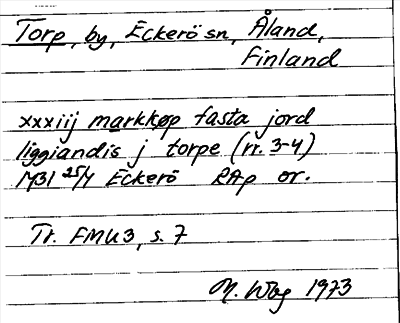 Torp, by, Eckerö sn, Åland,
Finland
xxxiij markkøp fasta jord
liggiandis j torpe (rr. 3-4)
1431 25/4 Eckerö RAp or.
Tr. FMU 3, s. 7
M. Wbg 1973